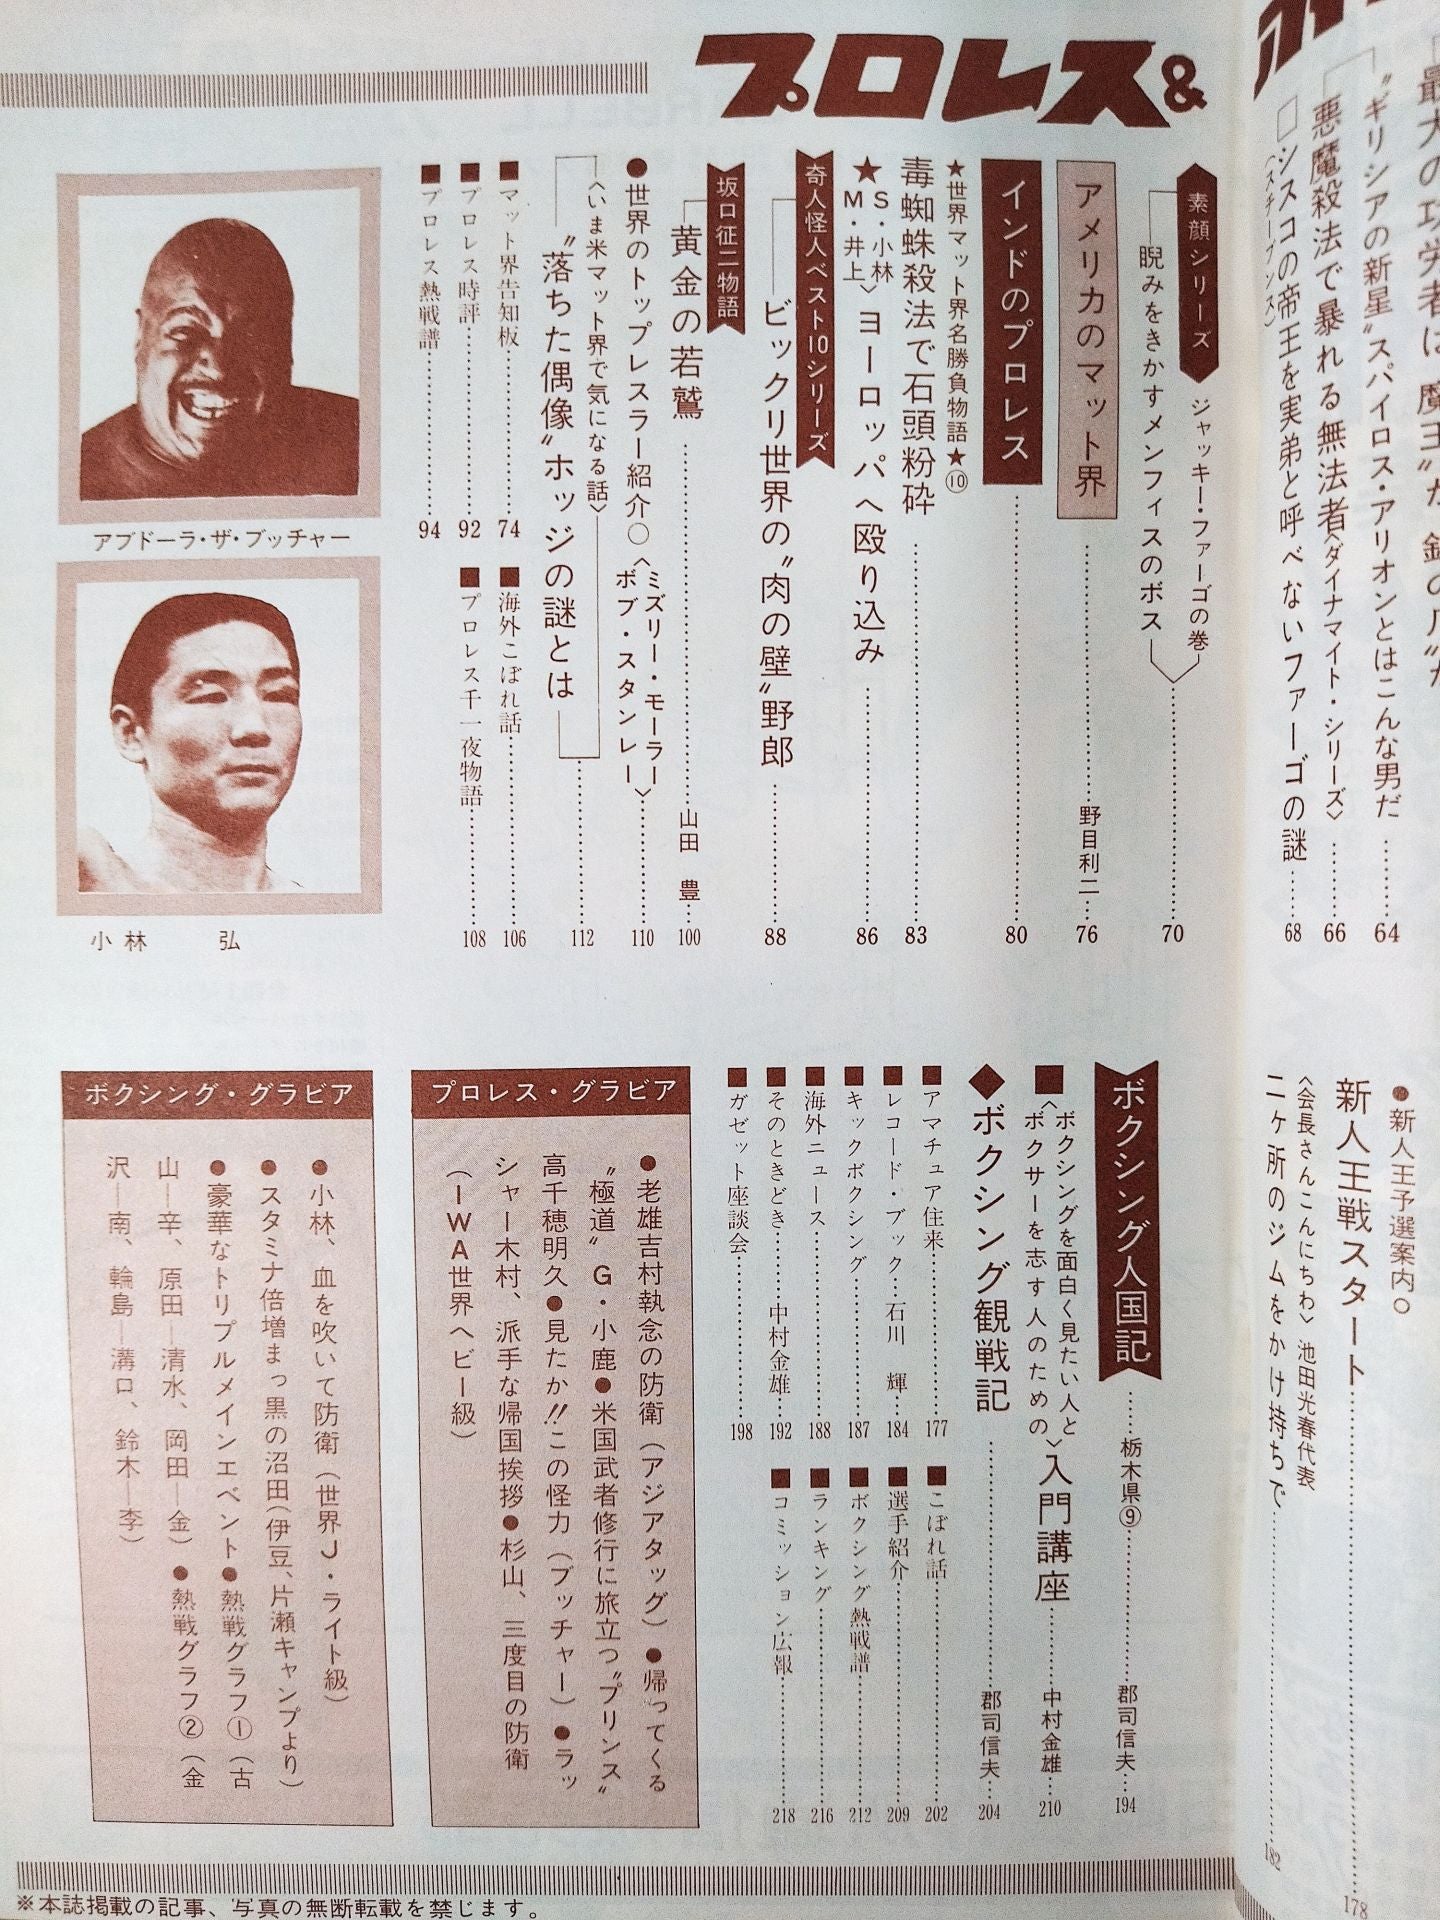 プロレス&
最大の功労者は〝魔王〟か〝鉄の爪〟か
〝ギリシアの新星〟スパイロス・アリオンとはこんな男だ……… 64
悪魔殺法で暴れる無法者〈ダイナマイト・シリーズ〉……… 66
□シスコの帝王を実弟と呼べないファーゴの謎…… 68
〈スチーブンス〉
素顔シリーズ
ジャッキー・ファーゴの巻
睨みをきかすメンフィスのボス……… 70
アメリカのマット界………野目利二… 76
インドのプロレス……… 80
★世界マット界名勝負物語★⑩
毒蜘蛛殺法で石頭粉砕……… 83
★S・小林
M・井上〉ヨーロッパへ殴り込み……… 86
奇人怪人ベスト10シリーズ
ビックリ世界の〝肉の壁〟野郎……… 88
坂口征二物語
黄金の若鷲………山田 豊… 100
●世界のトップレスラー紹介○〈ミズリー・モーラー
ボブ・スタンレー〉……… 110
〈いま米マット界で気になる話〉
〝落ちた偶像〟ホッジの謎とは……… 112
■マット界告知板……… 74
■プロレス時評……… 92
■プロレス熱戦譜……… 94
■海外こぼれ話……… 106
■プロレス千一夜物語……… 108
アブドーラ・ザ・ブッチャー
小林 弘
●新人王予選案内○
新人王戦スタート……… 178
〈会長さんこんにちわ〉池田光春代表
二ヶ所のジムをかけ持ちで……… 182
ボクシング人国記……栃木県⑨………郡司信夫… 194
■〈ボクシングを面白く見たい人と
ボクサーを志す人のための〉入門講座………中村金雄… 210
◆ボクシング観戦記………郡司信夫… 204
■アマチュア往来……… 177
■レコード・ブック…石川 輝… 184
■キックボクシング……… 187
■海外ニュース……… 188
■そのときどき………中村金雄… 192
■ガゼット座談会……… 198
■こぼれ話……… 202
■選手紹介……… 209
■ボクシング熱戦譜……… 212
■ランキング……… 216
■コミッション広報……… 218
プロレス・グラビア
●老雄吉村執念の防衛（アジアタッグ）●帰ってくる
〝極道〟G・小鹿●米国武者修行に旅立つ〝プリンス〟
高千穂明久●見たか!!この怪力（ブッチャー）●ラッ
シャー木村、派手な帰国挨拶●杉山、三度目の防衛
（IWA世界ヘビー級）
ボクシング・グラビア
●小林、血を吹いて防衛（世界J・ライト級）
●スタミナ倍増まっ黒の沼田（伊豆、片瀬キャンプより）
●豪華なトリプルメインエベント●熱戦グラフ①（古
山―辛、原田―清水、岡田―金）●熱戦グラフ②（金
沢―南、輪島―溝口、鈴木―李）
※本誌掲載の記事、写真の無断転載を禁じます。